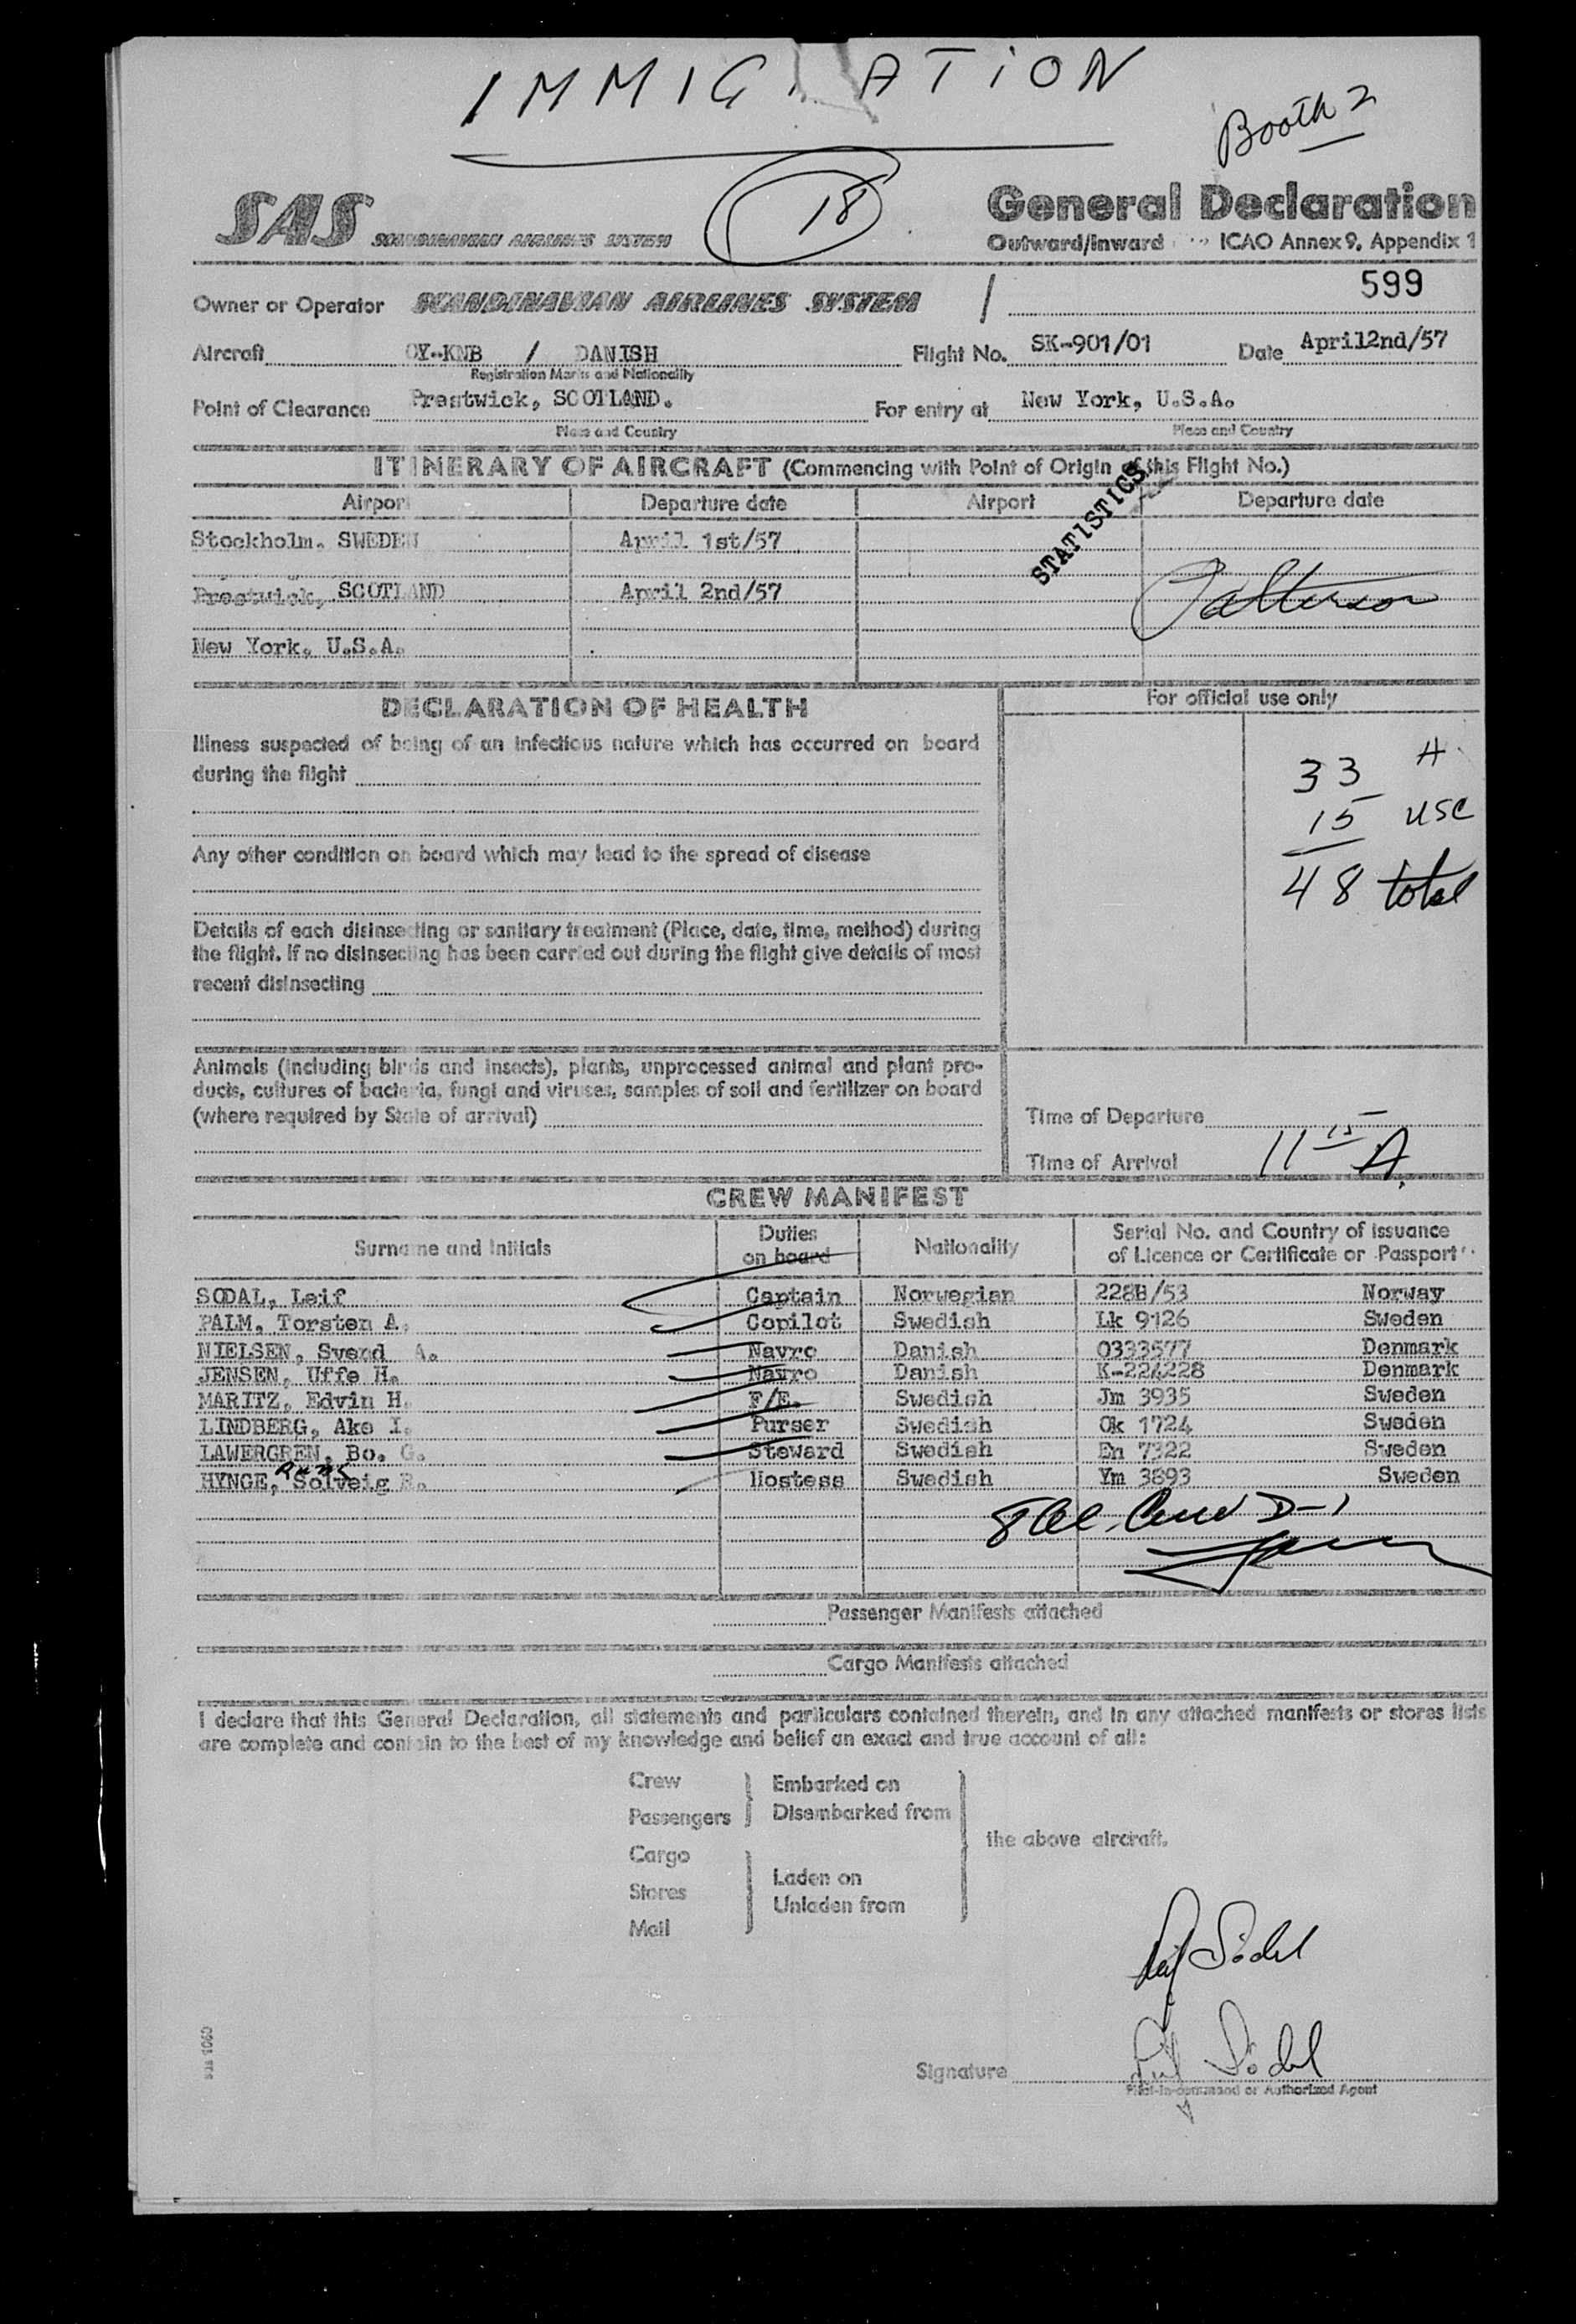 IMMIG ATION
Booth 2
18
SAS SCANDINAVIAN AIRLINES SYSTEM
General Declaration
Outward/Inward ICAO Annex 9, Appendix 1
599
Owner or Operator SCANDINAVIAN AIRLINES SYSTEM
Aircraft OY-KNB / DANISH Flight No. SK-901/01 Date April2nd/57
Registration Marks and Nationality
Point of Clearance Prestwick, SCOTLAND. For entry at New York, U.S.A.
Place and Country Place and Country
ITINERARY OF AIRCRAFT (Commencing with Point of Origin of this Flight No.)
Airport Departure date Airport Departure date
STATISTICS
Stockholm. SWEDEN April 1st/57
Prestwick, SCOTLAND April 2nd/57
Patterson
New York, U.S.A.
DECLARATION OF HEALTH
For official use only
Illness suspected of being of an infectious nature which has occurred on board
during the flight
33 A
15 USC
48 total
Any other condition on board which may lead to the spread of disease
Details of each disinsecting or sanitary treatment (Place, date, time, method) during
the flight. If no disinsecting has been carried out during the flight give details of most
recent disinsecting
Animals (including birds and insects), plants, unprocessed animal and plant pro-
ducts, cultures of bacteria, fungi and viruses, samples of soil and fertilizer on board
(where required by State of arrival)
Time of Departure
Time of Arrival 11 15 A.
CREW MANIFEST
Surname and Initials Duties on board Nationality Serial No. and Country of issuance of Licence or Certificate or Passport
SODAL, Leif Captain Norwegian 228B/53 Norway
PALM, Torsten A. Copilot Swedish Lk 9126 Sweden
NIELSEN, Svend A. Navro Danish 0333577 Denmark
JENSEN, Uffe H. Navro Danish K-224228 Denmark
MARITZ, Edvin H. F/E. Swedish Jm 3935 Sweden
LINDBERG, Ake I. Purser Swedish Ok 1724 Sweden
LAWERGREN, Bo. G. Steward Swedish En 7322 Sweden
HYNGE, Solveig R. Hostess Swedish Ym 3893 Sweden
8 al. Crew D-1
Passenger Manifests attached
Cargo Manifests attached
I declare that this General Declaration, all statements and particulars contained therein, and in any attached manifests or stores lists
are complete and contain to the best of my knowledge and belief an exact and true account of all:
Crew
Passengers
Embarked on
Disembarked from
Cargo
Stores
Mail
Laden on
Unladen from
the above aircraft.
Leif Södal
Signature Leif Södal
Pilot-in-command or Authorized Agent